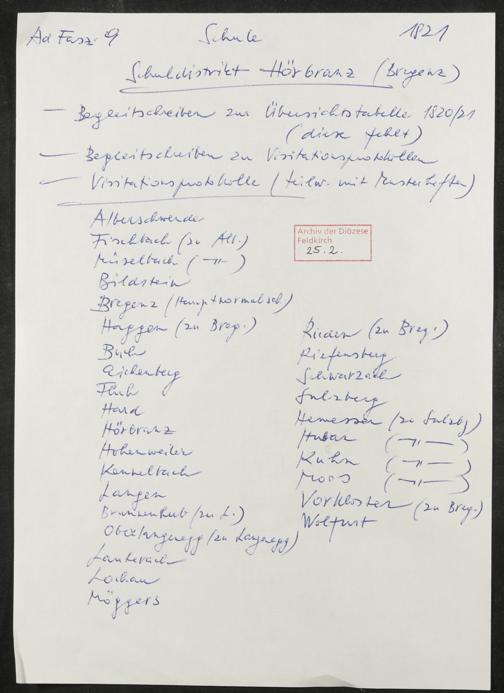 Ad Fasz. 9 Schule 1821
Schuldistrikt Hörbranz (Bregenz)
— Begleitschreiben zur Übersichtstabelle 1820/21
(diese fehlt)
— Begleitschreiben zu Visitationsprotokollen
— Visitationsprotokolle (teilw. mit Musterheften)
Archiv der Diözese
Feldkirch
25.2.
Alberschwende
Fischbach (zu Alb.)
Müselbach (—"—)
Bildstein
Bregenz (Hauptnormalsch)
Haggen (zu Breg.)
Buch
Eichenberg
Fluh
Hard
Hörbranz
Hohenweiler
Kennelbach
Langen
(zu L.)
Oberlangenegg (zu Langenegg)
Lauterach
Lochau
Möggers
Rieden (zu Breg.)
Riefensberg
Schwarzach
Sulzberg
(zu Sulzbg)
(—"—)
Kuhn (—"—)
Moos (—"—)
Vorkloster (zu Breg.)
Wolfurt